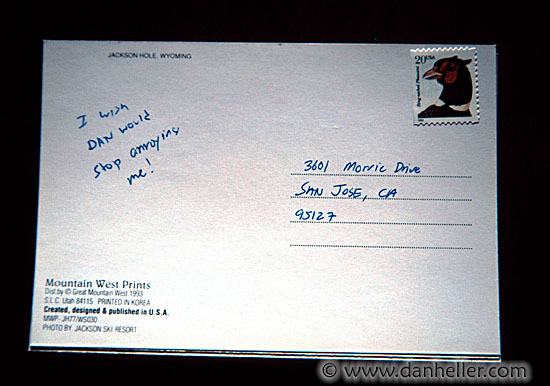 JACKSON HOLE, WYOMING
20USA
Ring-necked Pheasant
I wish
DAN would
stop annoying
me!
3601 Morrie Drive
SAN JOSE, CA
95127
Mountain West Prints
Dist by © Great Mountain West 1993
S.L.C. Utah 84115 PRINTED IN KOREA
Created, designed & published in U.S.A.
MWP- JH77/WS030
PHOTO BY JACKSON SKI RESORT
© www.danheller.com